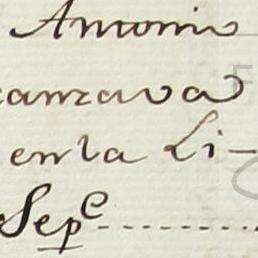 Antonio
canzava
en la Li-
Sepe